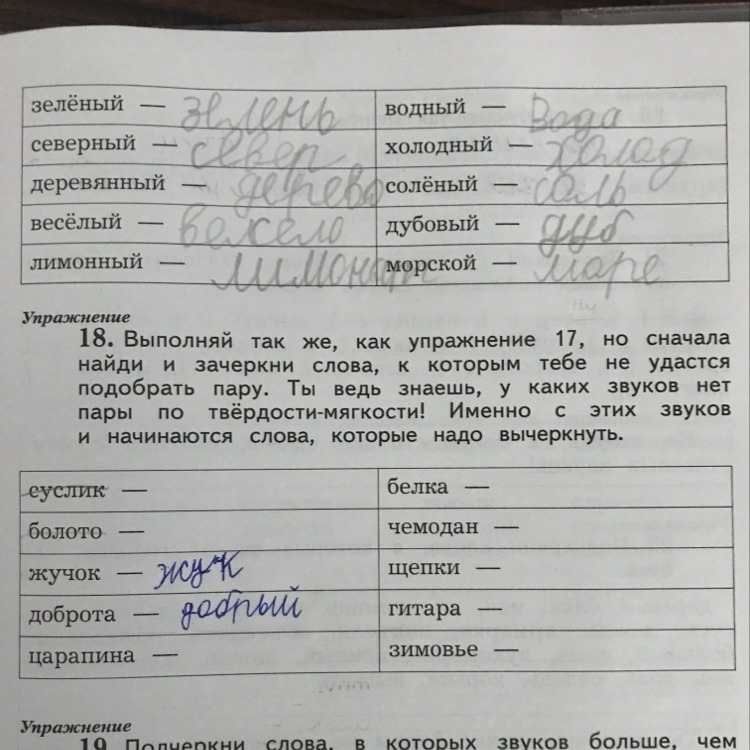 зелёный — зелень водный — Вода
северный — север холодный — холод
деревянный — дерево солёный — соль
весёлый — вежело дубовый — дуб
лимонный — лимонат морской — море
Упражнение
18. Выполняй так же, как упражнение 17, но сначала
найди и зачеркни слова, к которым тебе не удастся
подобрать пару. Ты ведь знаешь, у каких звуков нет
пары по твёрдости-мягкости! Именно с этих звуков
и начинаются слова, которые надо вычеркнуть.
суслик — белка —
болото — чемодан —
жучок — жук щепки —
доброта — добрый гитара —
царапина — зимовье —
Упражнение
19. Подчеркни слова, в которых звуков больше, чем